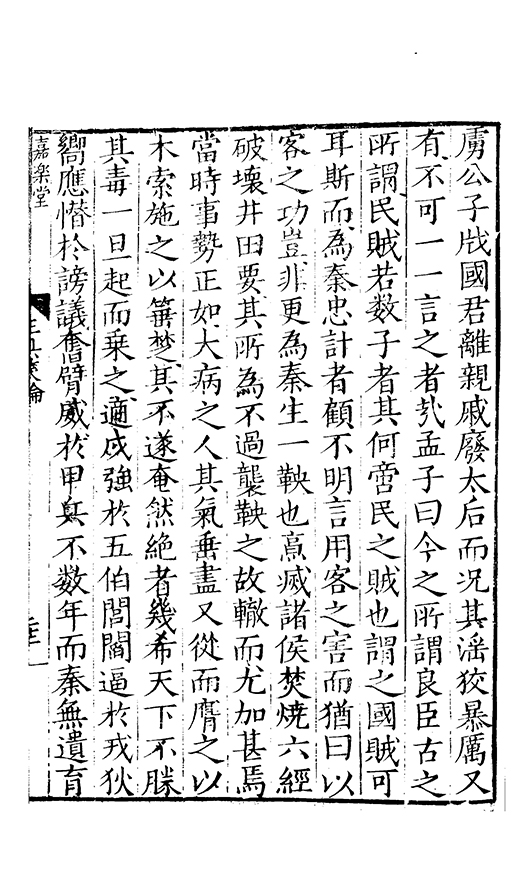 虜公子戕國君離親戚廢太后而况其滛狡暴厲又
有不可一一言之者㢤孟子曰今之所謂良臣古之
所謂民賊若数子者其何啻民之賊也謂之國賊可
耳斯而為秦忠計者顧不明言用客之害而猶曰以
客之功豈非更為秦生一鞅也髙㓕諸侯焚燒六經
破壞井田要其所為不過襲鞅之故轍而尤加甚焉
當時事勢正如大病之人其氣垂盡又從而膺之以
木索施之以箠楚其不遂奄然絶者幾希天下不勝
其毒一旦起而乗之適戍強於五伯閭閻逼於戎狄
嚮應憯於謗議奮臂威於甲兵不数年而秦無遺育
嘉樂堂
論